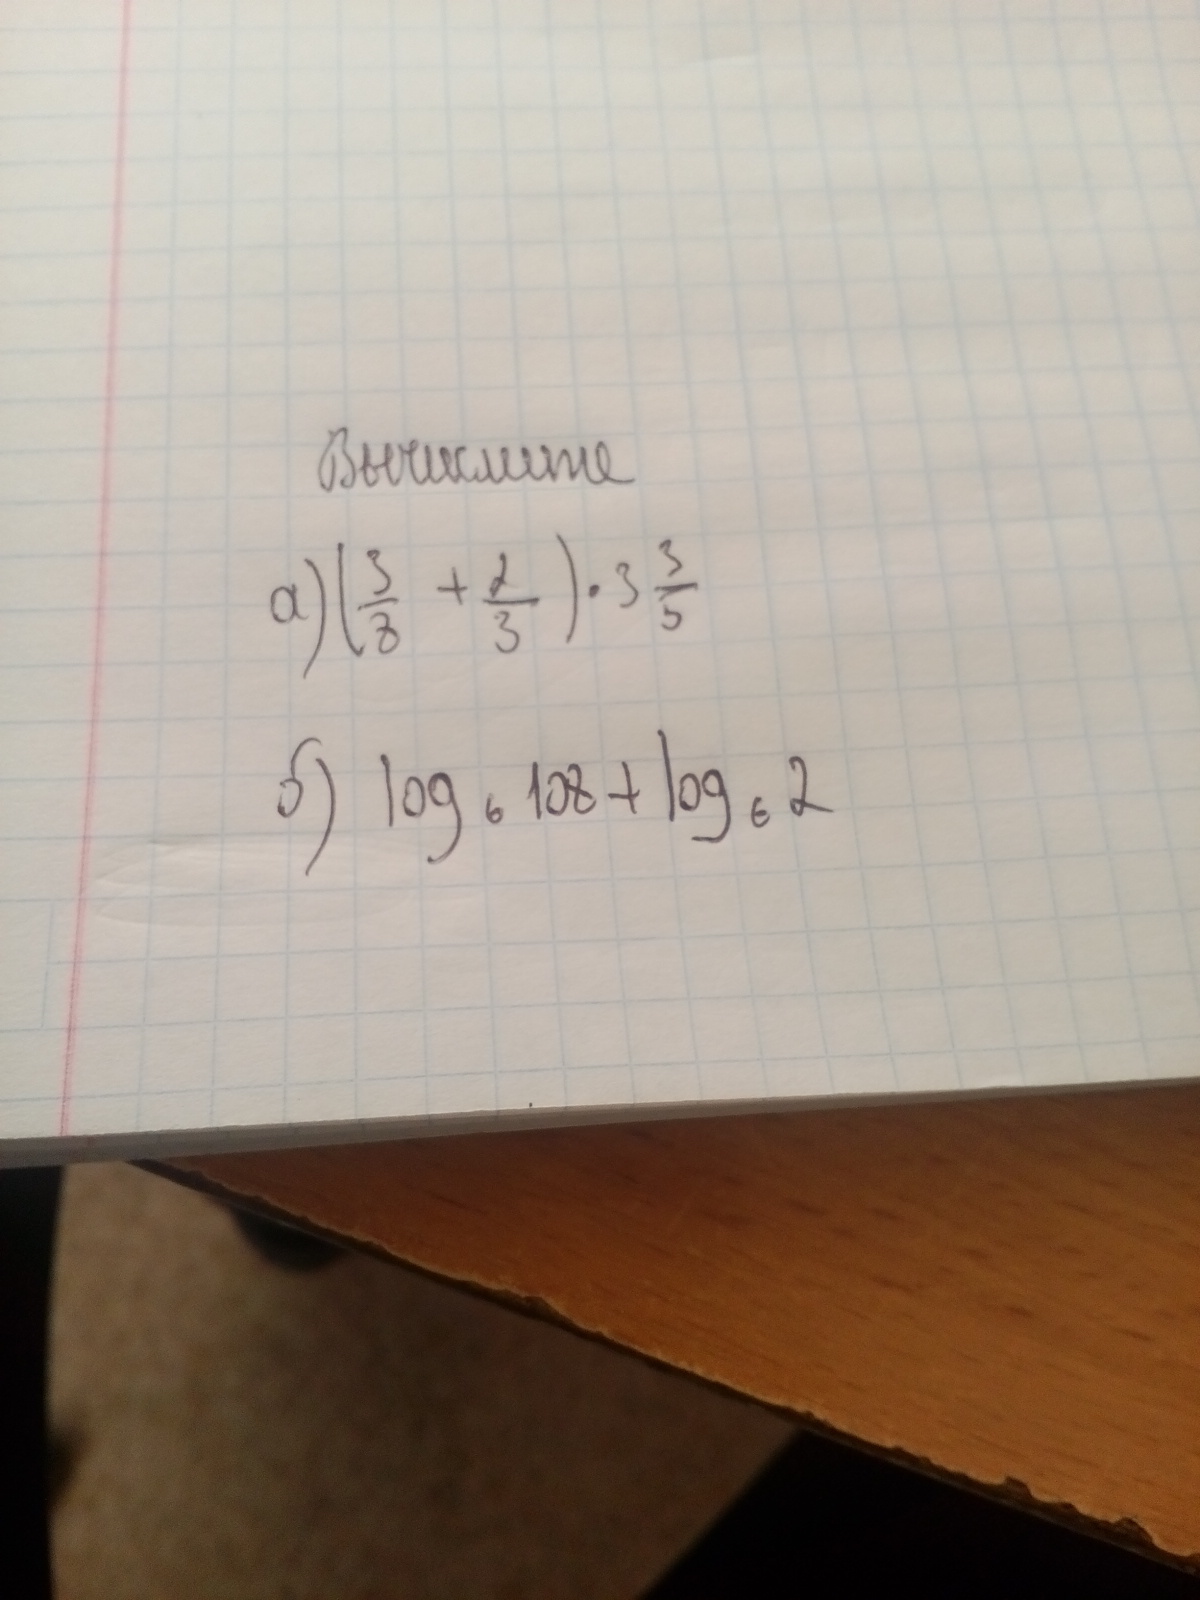 Вычислите
а) (3/8 + 2/3) · 3 3/5
б) log₆ 108 + log₆ 2